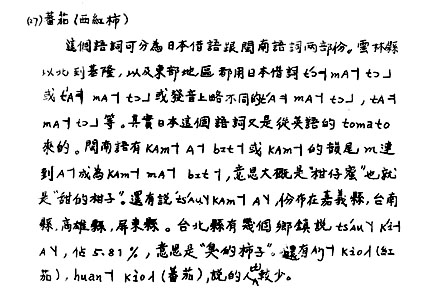 (17)蕃茄(西紅柿)
這個語詞可分為日本借語跟閩南語詞兩部份。雲林縣
以北到基隆,以及東部地區都用日本借詞
或 或發音上略不同的
等。其實日本這個語詞又是從英語的 tomato
來的。閩南語有 KAm˧ A˥ bit˥ 或 KAm˧ 的韻尾 m 連
到 A˥ 成為 KAm˧ mA˥ bit˥,意思大概是“柑仔蜜”也就
是“甜的柑子”。還有說 KAm˧ AY,份布在嘉義縣,台南
縣,高雄縣,屏東縣。台北縣有幾個鄉鎮說
AY,佔 5.81%,意思是“臭的柿子”。還有 Kiol (紅
茄), huan˧ Kiol (蕃茄),說的人比較少。